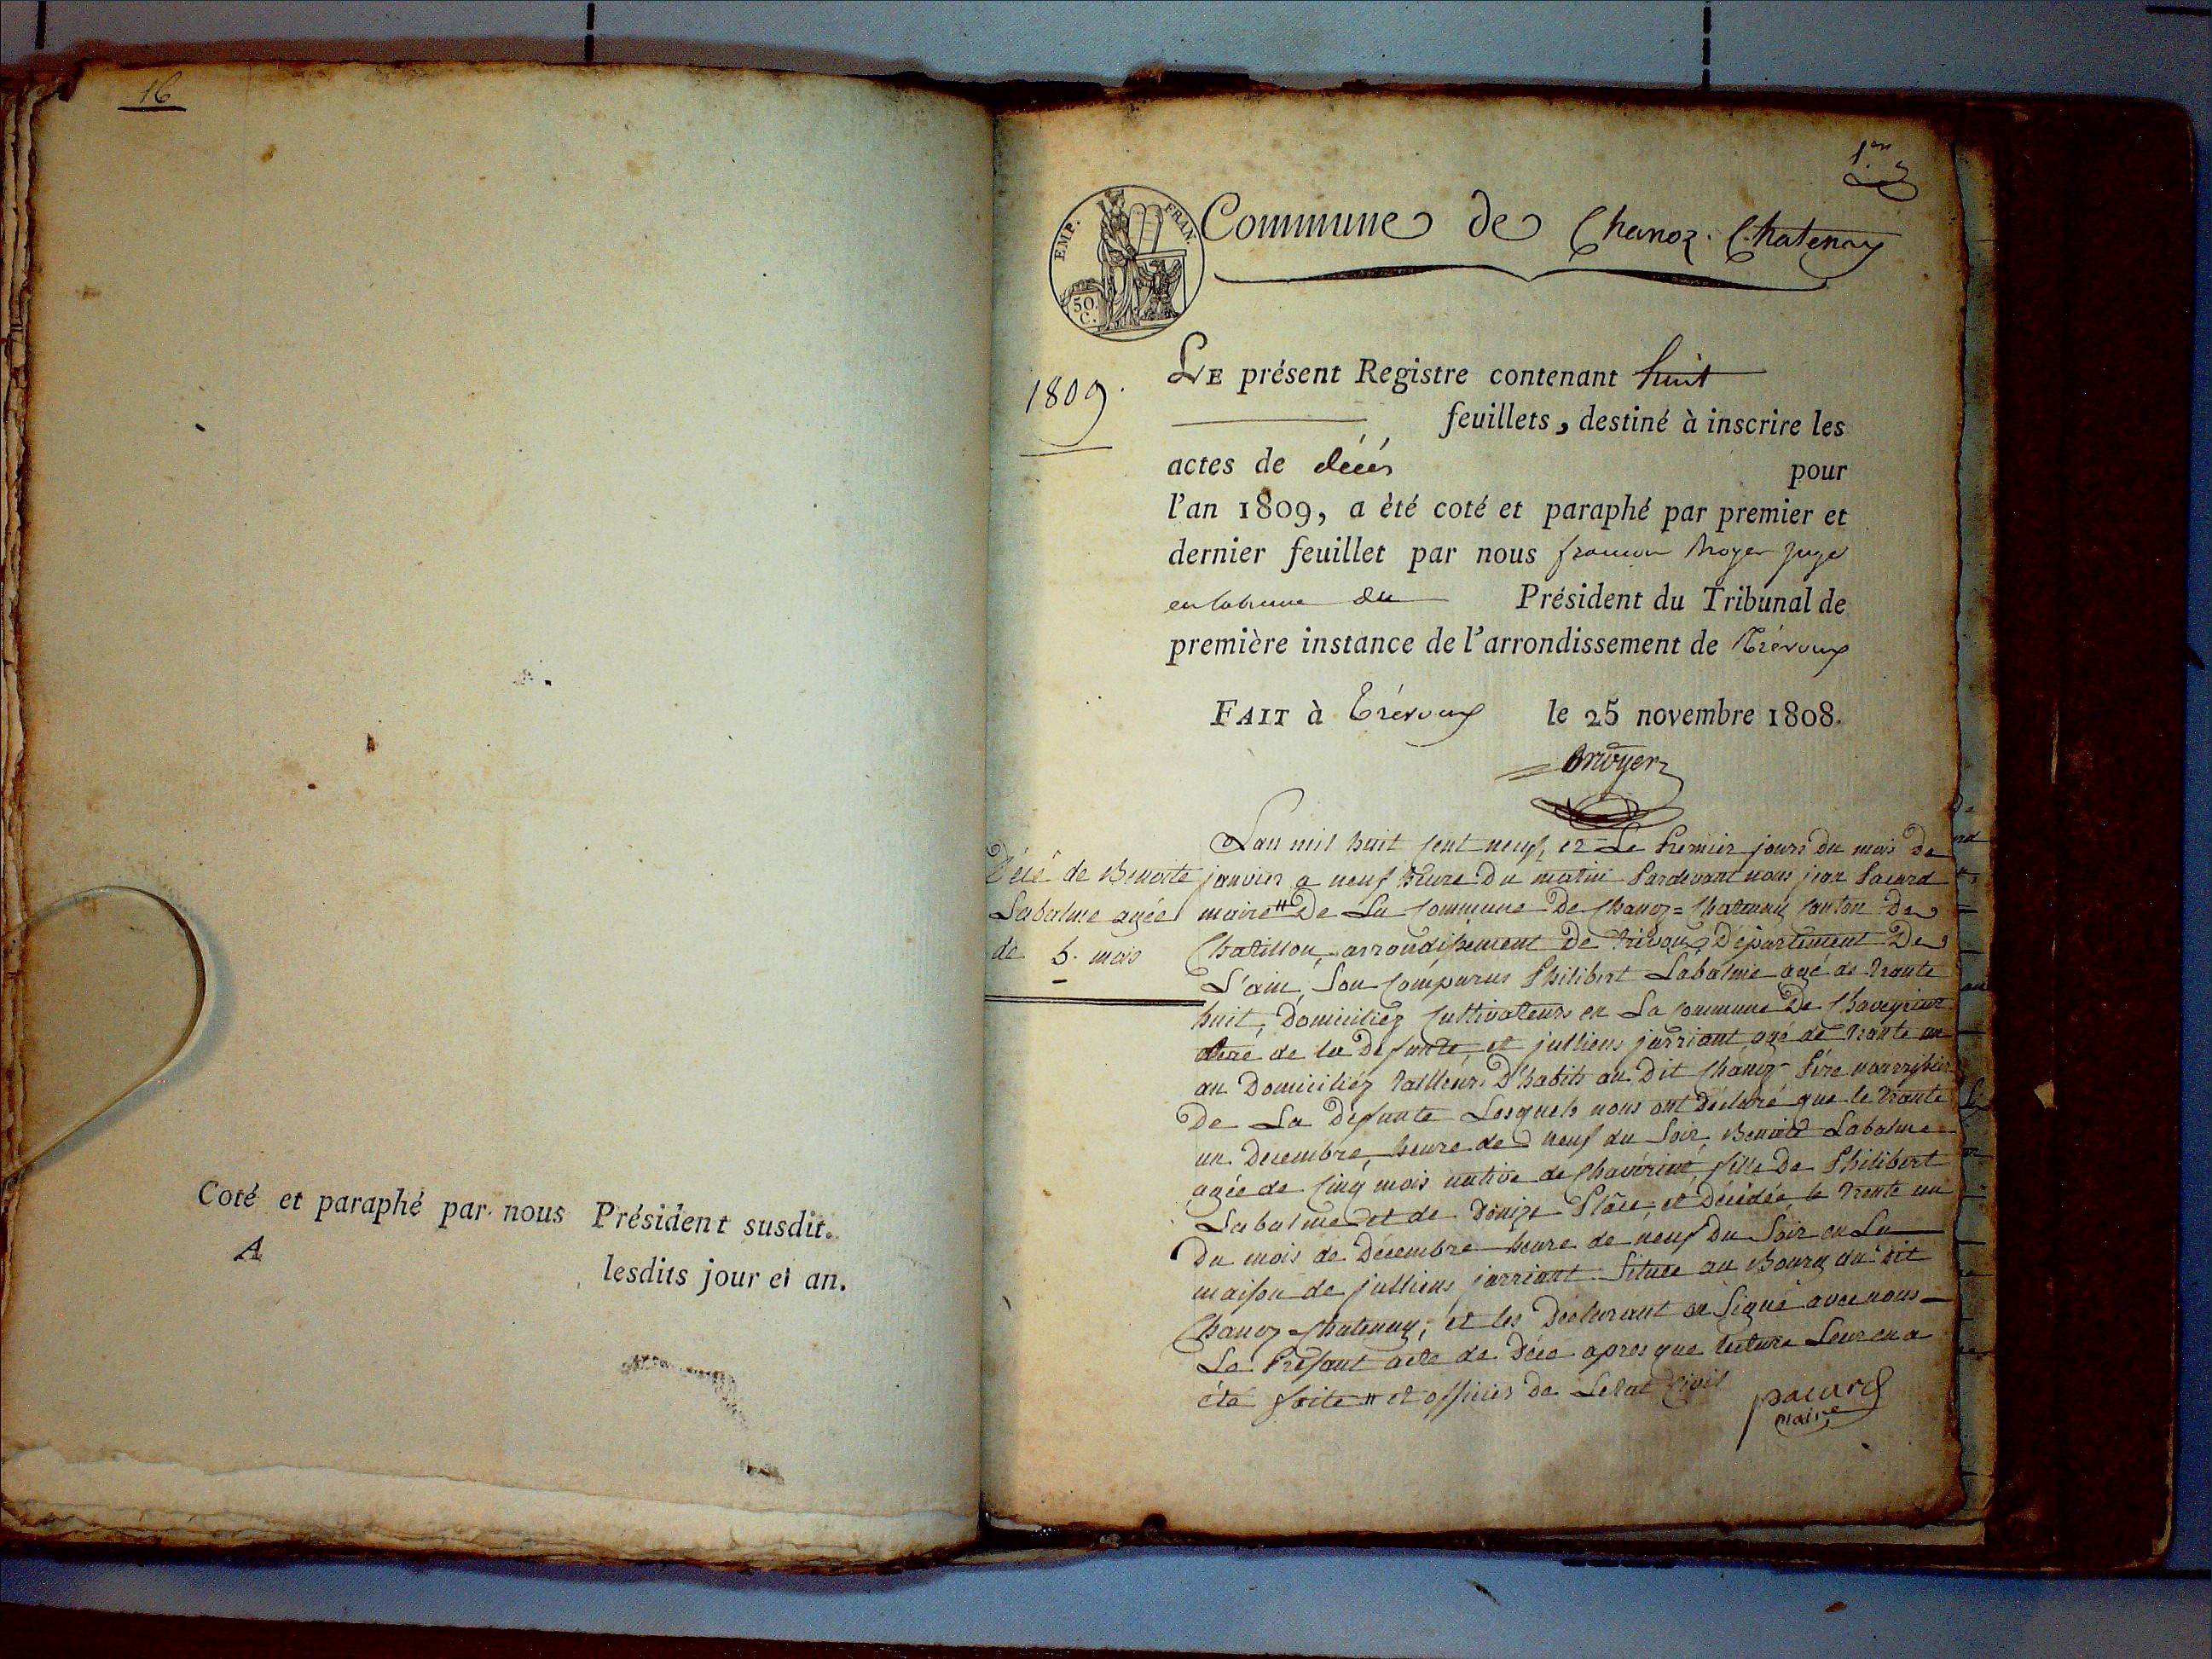 16
Coté et paraphé par nous Président susdit.
A lesdits jour et an.
1er
EMP. FRAN.
50.
C.
Commune de Chanoz. Chatenay
1809.
LE présent Registre contenant huit
feuillets, destiné à inscrire les
actes de décés pour
l'an 1809, a èté coté et paraphé par premier et
dernier feuillet par nous Broyer juge
du Président du Tribunal de
première instance de l'arrondissement de Trévoux
FAIT à Trévoux le 25 novembre 1808.
Broyer
Décé de Benoite
Labalme agée
de 5. mois
Lan mil huit cent neuf, et Le Premier jours du mois De
janvier a neuf heure Du matin Pardevant nous jean Pacard
maire # De La Commune De Chanoz=Chatenay Canton De
Chatillon, arrondissement De Trévoux, Département De
L'ain, Son Comparus Philibert Labalme agé de trante
huit, Domiciliez Cultivateurs en La Commune De Chaveyriat
Pere de la Defunte, et julliens jarriant agé de trante un
an Domiciliéz tailleurs D'habits au Dit Chanoz Pére nourrissier
De La Defunte Lesquels nous ont Déclaré que le trante
un Décembre, heure de neuf du Soir, Benoite Labalme
agée de Cinq mois native de fille De Philibert
Labalme et de Denize et Décédée le trente un
Du mois de Décembre heure de neuf Du Soir en La
maison de julliens jarriant Située au Bourg du Dit
Chanoz=Chatenay, et les Déclarant on Signé avec nous
Le Présant acte de Décé apres que lecture Leur en a
été faite # et officier De Letat Civil
pacard
maire